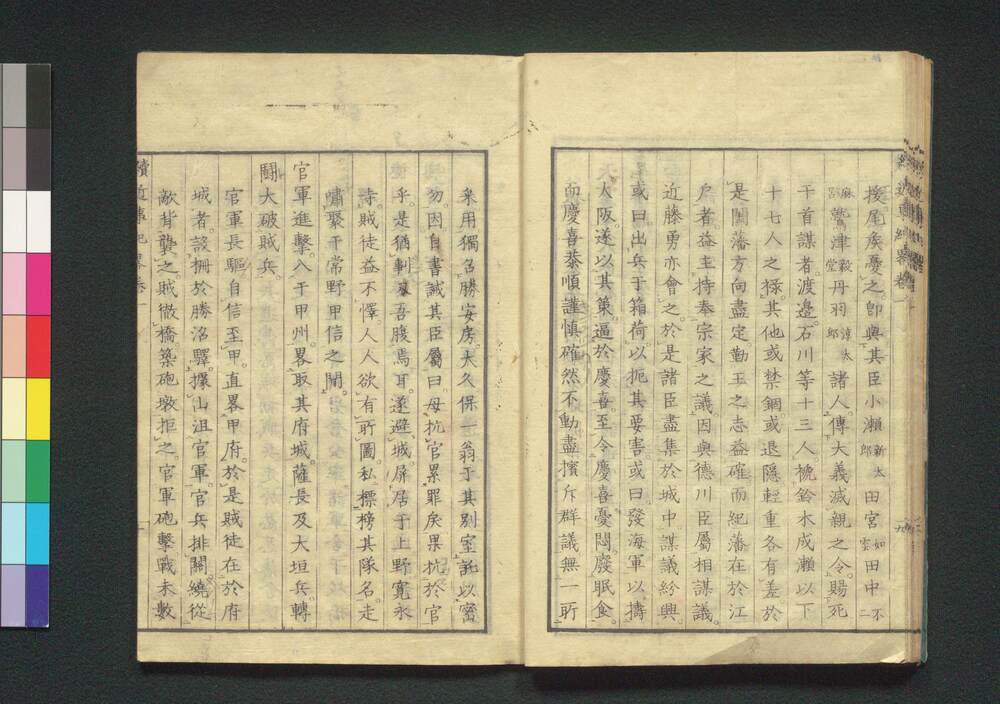 援尾矦憂之。卽與其臣小瀨新太郎田宮如雲田中不二
麻呂鷲津毅堂丹羽淳太郎諸人。傳大義滅親之令。賜死
于首謀者。渡邊石川等十三人。褫鈴木成瀨以下
十七人之祿。其他或禁錮。或退隱。輕重各有差。於
是闔藩方向盡定。勤王之志益確。而紀藩在於江
戶者。益主持奉宗家之議。因與德川臣屬相謀議。
近藤勇亦會之。於是諸臣盡集於城中。謀議紛興。
或曰。出兵于箱荷。以扼其要害。或曰。發海軍。以擣
大阪。遂以其策。逼於慶喜。至令慶喜憂悶廢眠食。
而慶喜恭順謹愼。確然不動。盡擯斥群議。無一所
采用。獨召勝安房。大久保一翁于其別室。託以密
勿。因自書誡其臣屬曰。毋抗官累罪矣。果抗於官
乎。是猶剚吾腹焉耳。遂避城。屏居于上野寬永
寺。賊徒益不懌。人人欲有所圖。私標榜其隊名。走
嘯聚于常野甲信之間。
官軍進擊。入于甲州。畧取其府城。薩長及大垣兵。轉
鬪大破賊兵。
官軍長驅。自信至甲。直畧甲府。於是賊徒在於府
城者。設柵於勝沼驛。據山沮官軍。官兵排關。繞從
敵背襲之。賊徹橋築砲墩拒之。官軍砲擊。戰未數
續近事紀畧卷一